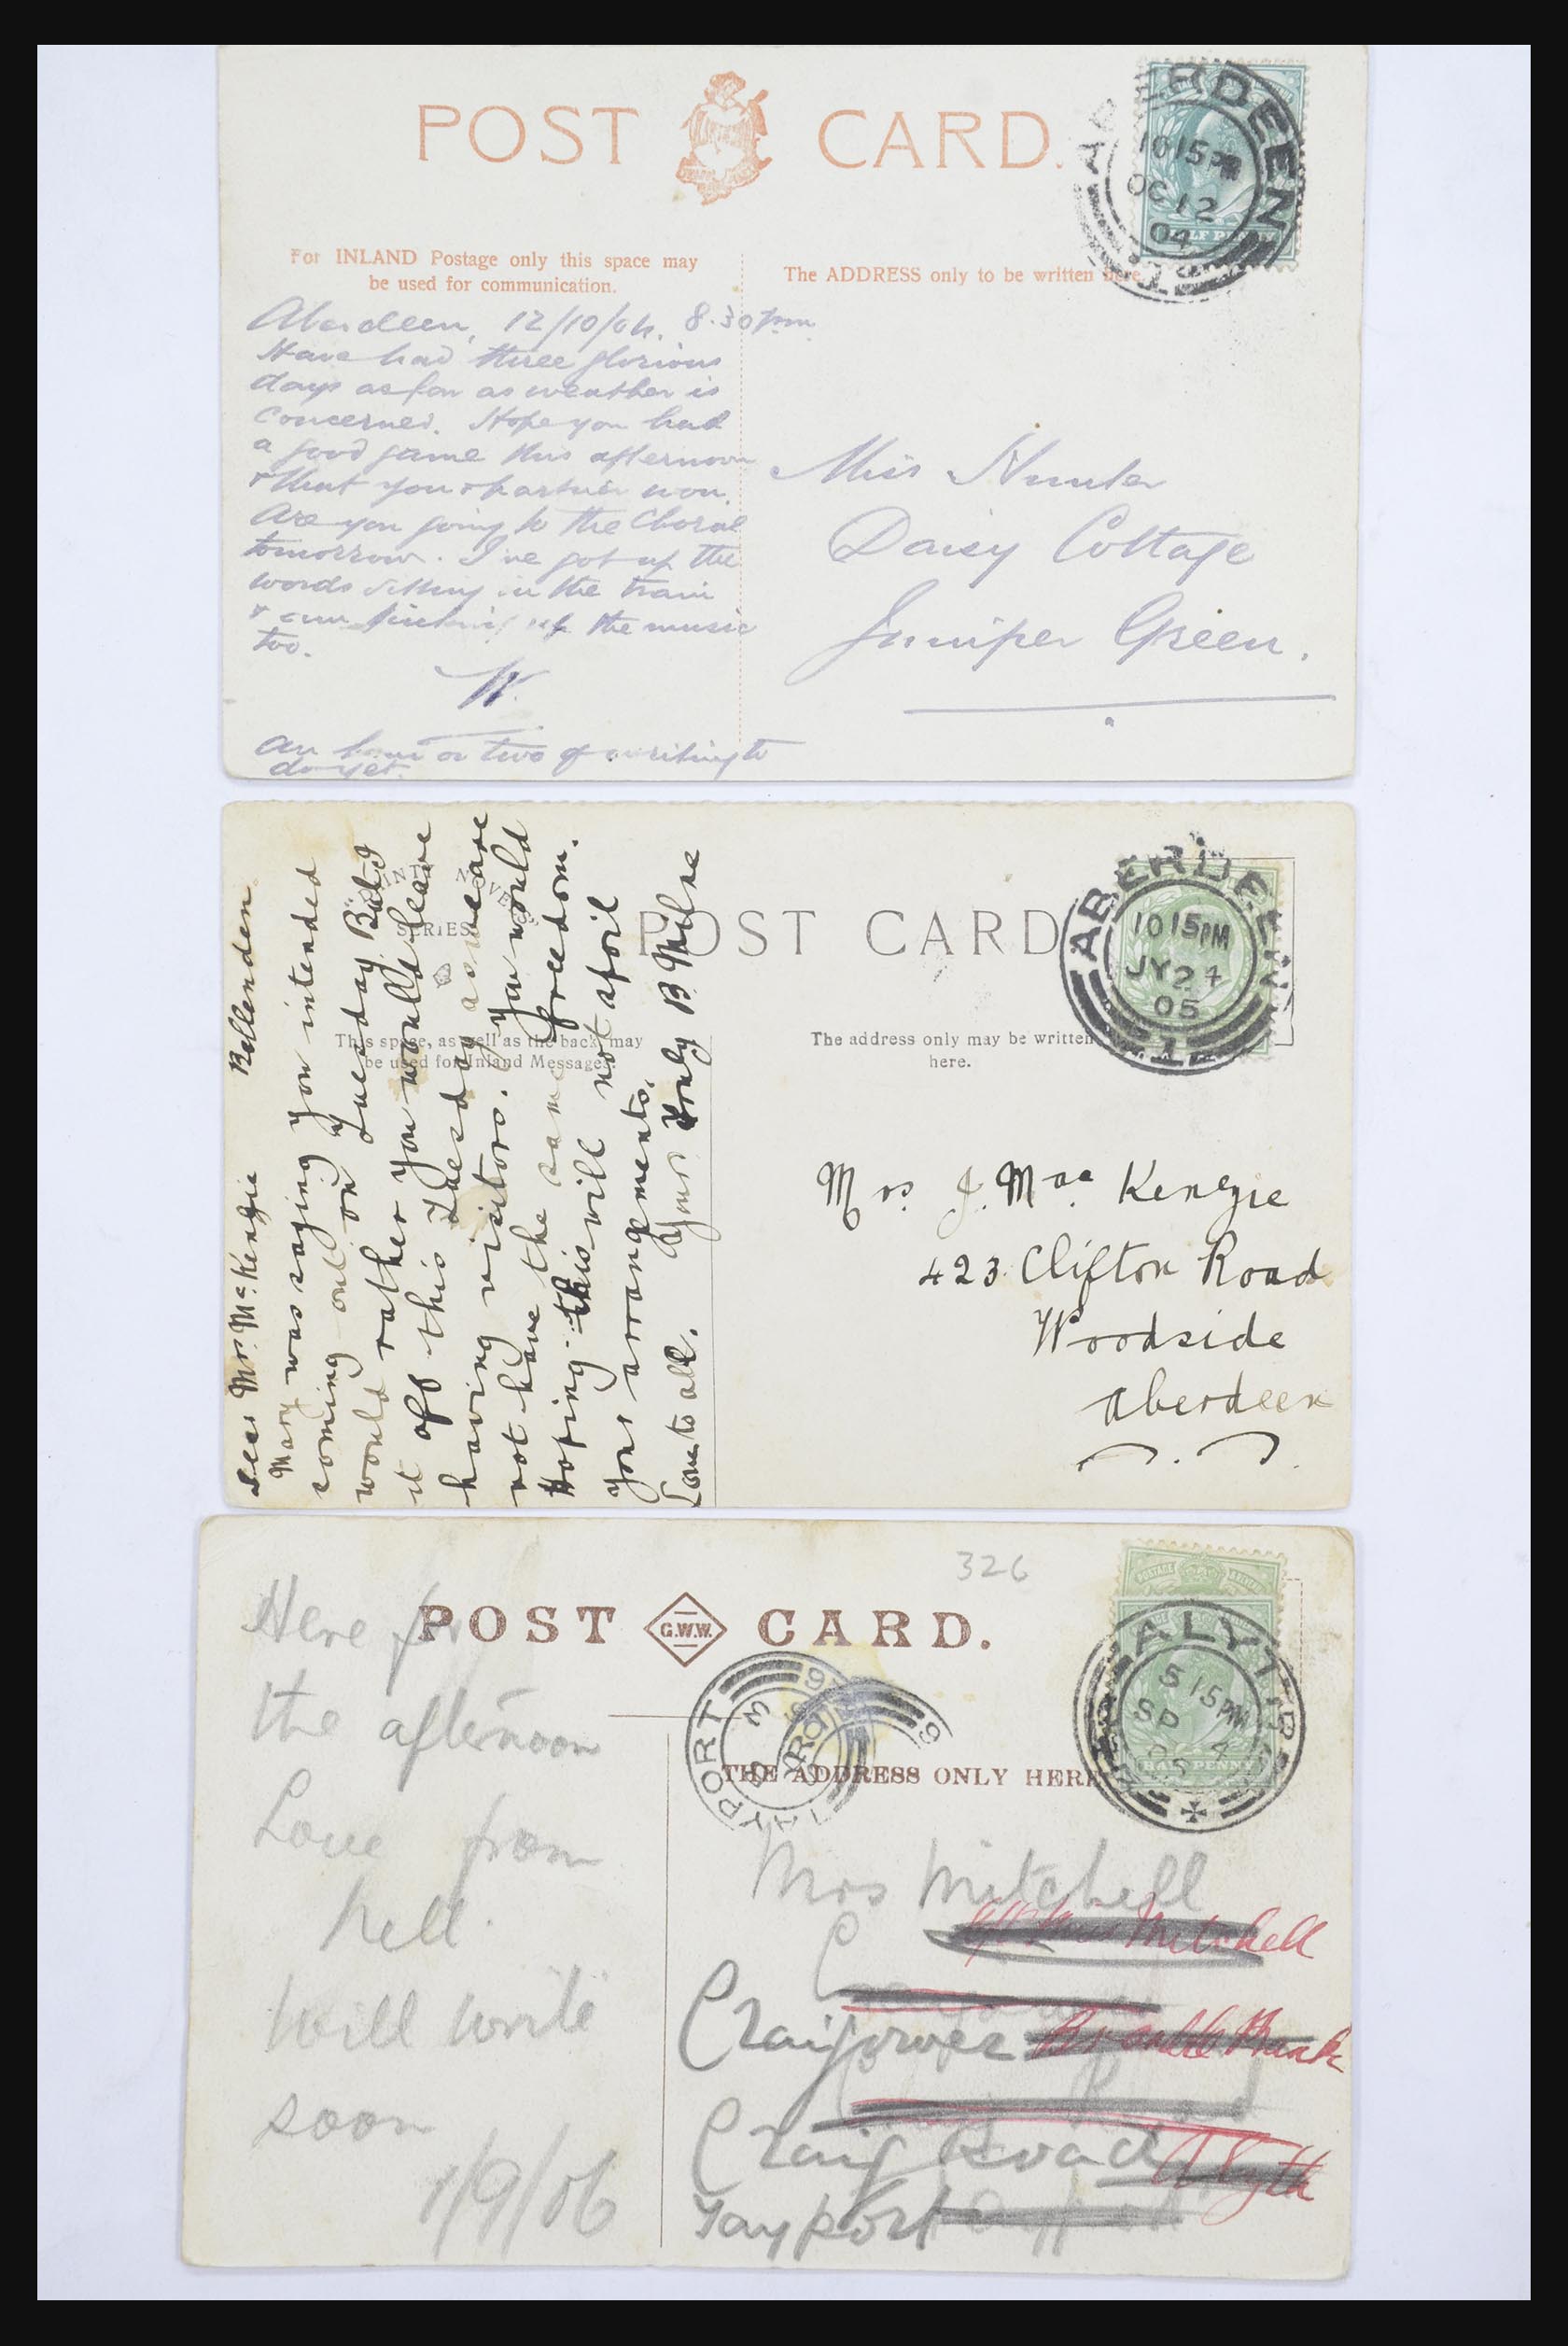 POST CARD.
ABERDEEN
10 15 PM
OC 12
04
1
HALF PENNY
For INLAND Postage only this space may
be used for communication.
The ADDRESS only to be written here.
Aberdeen, 12/10/04. 8.30pm
Have had three glorious
days as far as weather is
concerned. Hope you had
a good game this afternoon
& that you & partner won.
Are you going to the Choral
tomorrow. I've got up the
words sitting in the train
& am up the music
too.
W.
An hour or two of writing to
do yet.
Miss Hunter
Daisy Cottage
Juniper Green.
SERIES
POST CARD
ABERDEEN
10 15PM
JY 24
05
1
This space, as well as the back, may
be used for Inland Messages.
The address only may be written
here.
Bellenden
Dear Mrs. McKenzie
Mary was saying you intended
coming out on Tuesday. But I
would rather you would leave
it off this Tuesday as we are
having visitors. You would
not have the same freedom.
Hoping this will not spoil
your arrangements.
Love to all. Yours Truly B Milne
Mrs. J. Mac Kenzie
423 Clifton Road
Woodside
Aberdeen
326
POST G.W.W. CARD.
ALYTH
5 15PM
SP 4
HALF PENNY
TAYPORT
THE ADDRESS ONLY HERE
Here for
the afternoon
Love from
Nell.
Will write
soon
1/9/06
Mrs Mitchell
Mitchell
Craigower
Bank
Craig Road
Alyth
Tayport